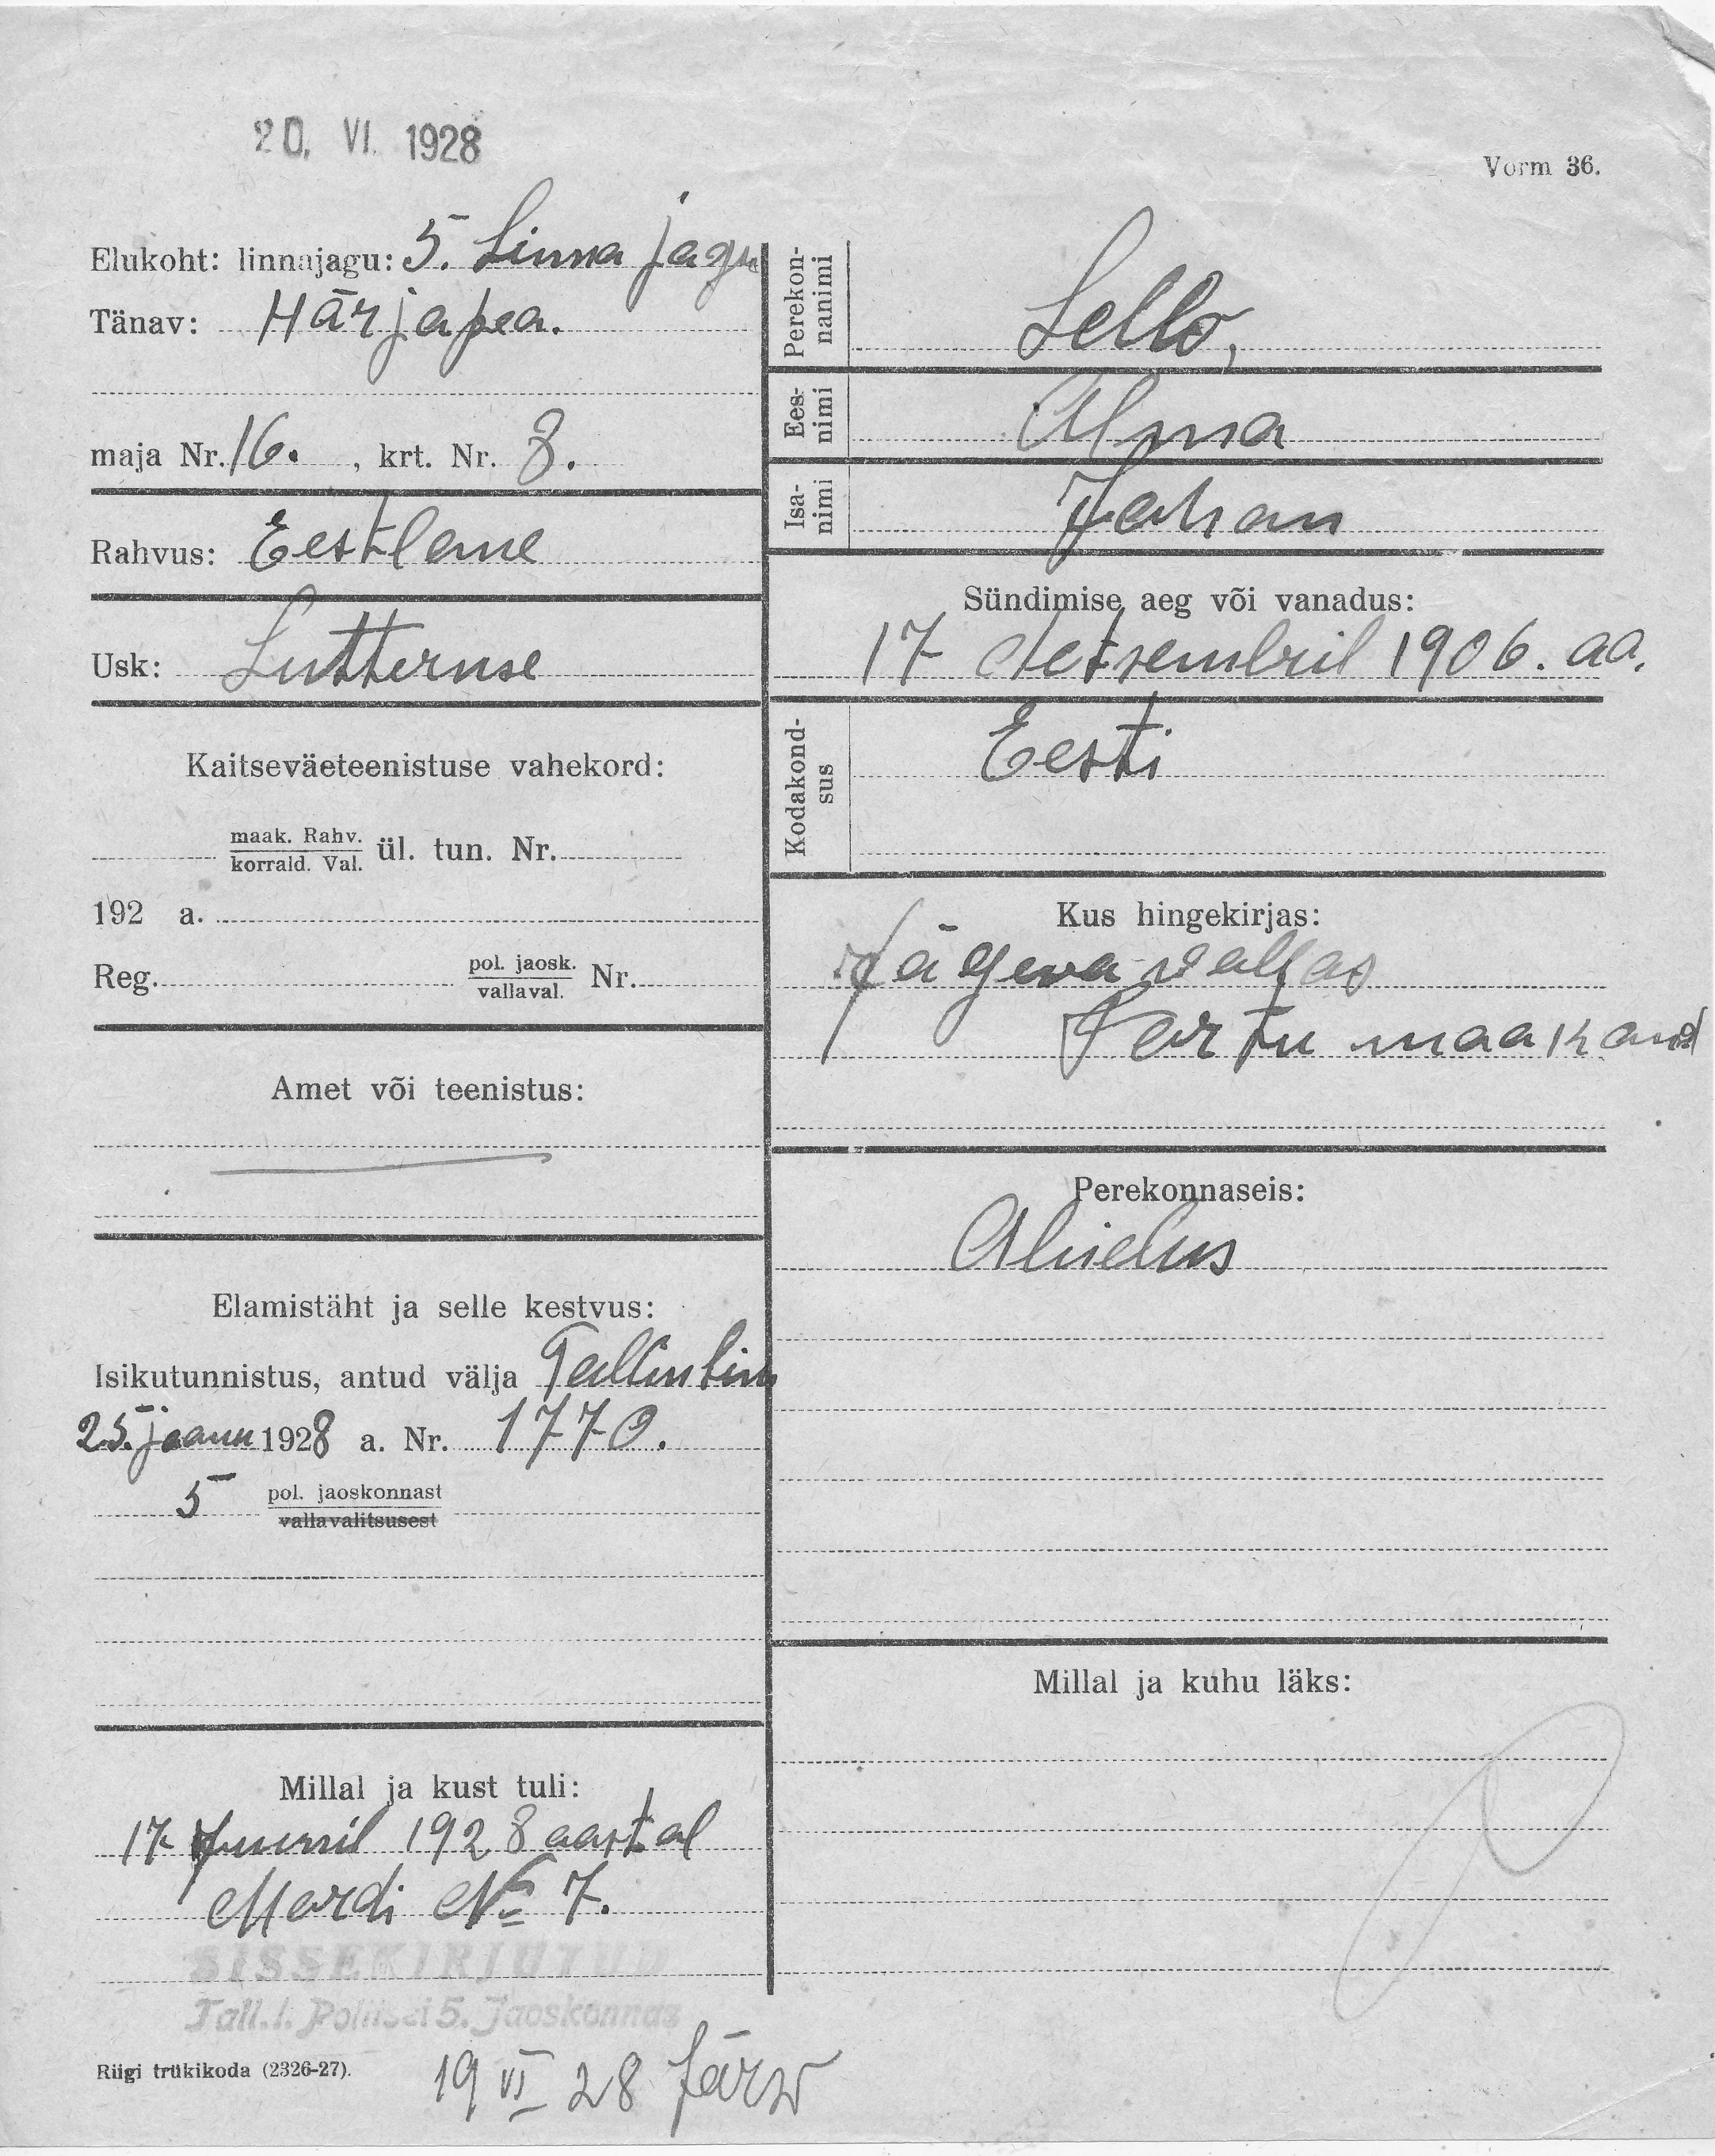 20. VI. 1928
Vorm 36.
Elukoht: linnajagu: 5. Linna jagu
Tänav: Härjapea.
maja Nr. 16. , krt. Nr. 8.
Rahvus: Eestlane
Usk: Lutteruse
Kaitseväeteenistuse vahekord:
maak. Rahv.
korrald. Val. ül. tun. Nr.
192 a.
Reg. pol. jaosk.
vallaval. Nr.
Amet või teenistus:
Elamistäht ja selle kestvus:
Isikutunnistus, antud välja Tallin lin
25. jaanu 1928 a. Nr. 1770.
5 pol. jaoskonnast
vallavalitsusest
Millal ja kust tuli:
17 Juunil 1928 aastal
Mardi № 7.
SISSEKIRJUTUD
Tall.l. Politsei 5. Jaoskonnas
Riigi trükikoda (2326-27).
19 VI 28 Järw
Perekon-
nanimi
Lello,
Ees-
nimi
Alma
Isa-
nimi
Juhan
Sündimise aeg või vanadus:
17 detsembril 1906. aa.
Kodakond-
sus
Eesti
Kus hingekirjas:
Jõgeva vallas
Tartu maakand
Perekonnaseis:
Abielus
Millal ja kuhu läks: